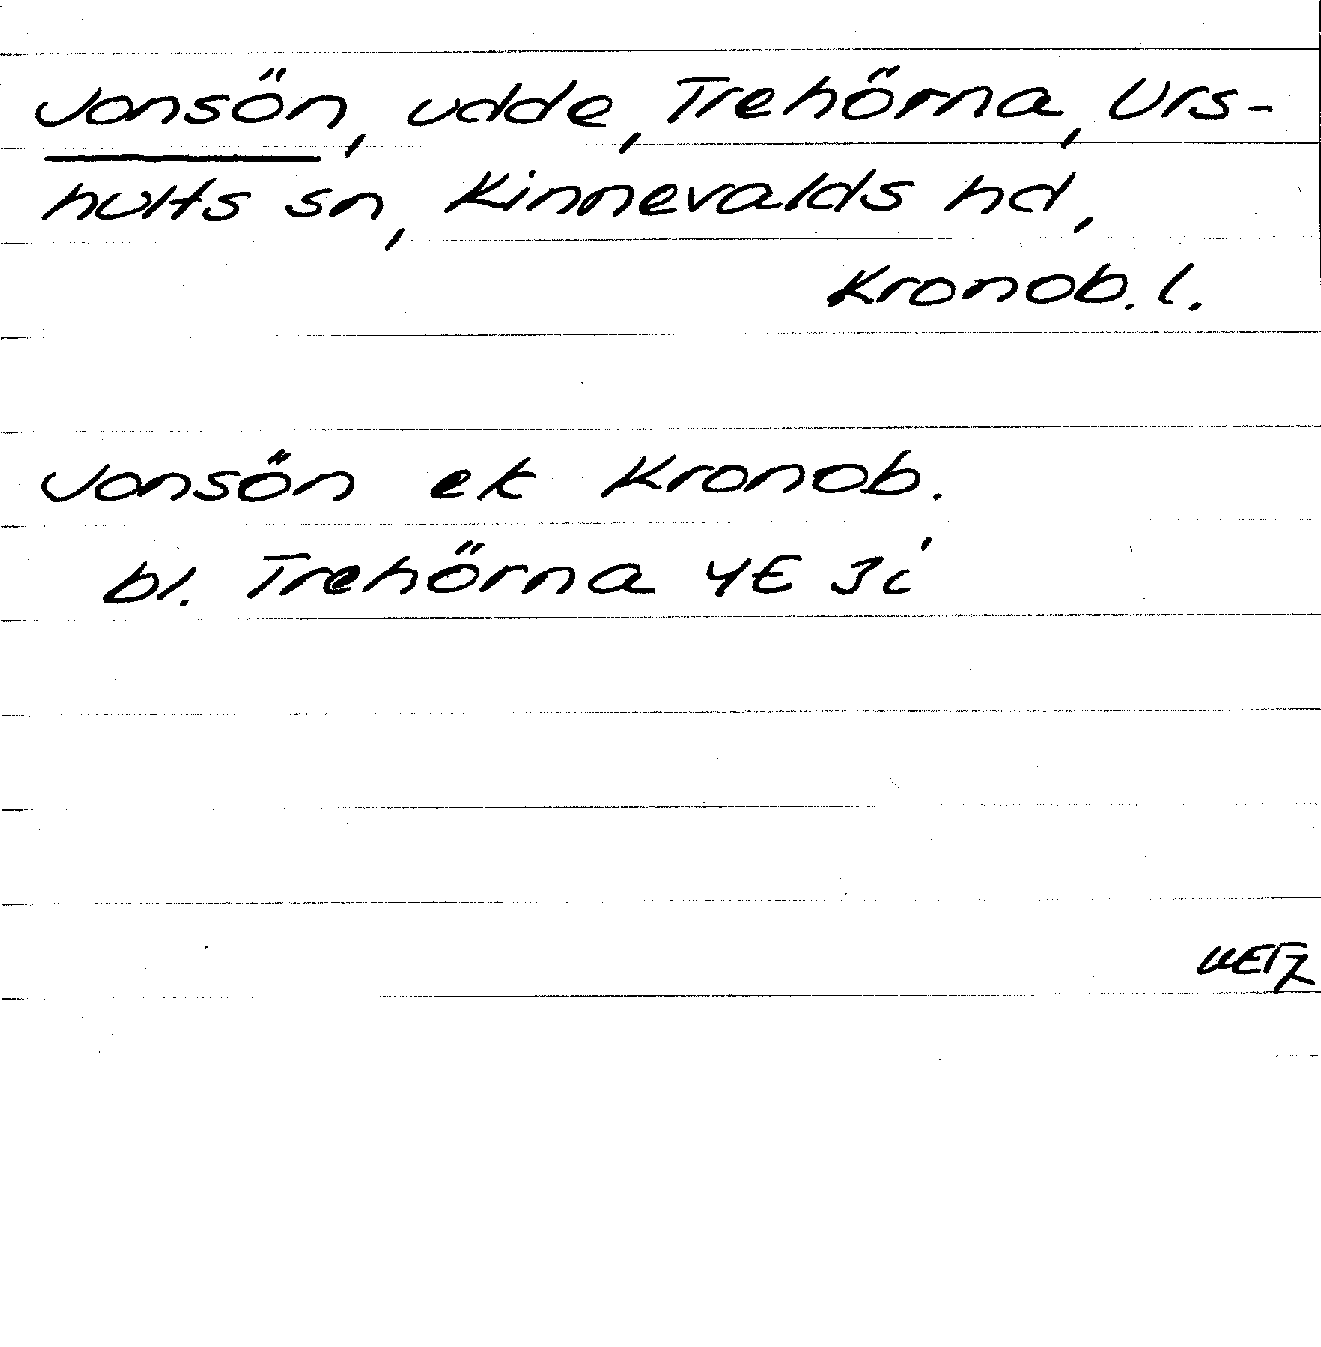 Jonsön, udde, Trehörna, Urs-
hults sn, Kinnevalds hd,
Kronob. l.
Jonsön ek Kronob.
bl. Trehörna 4E 3i